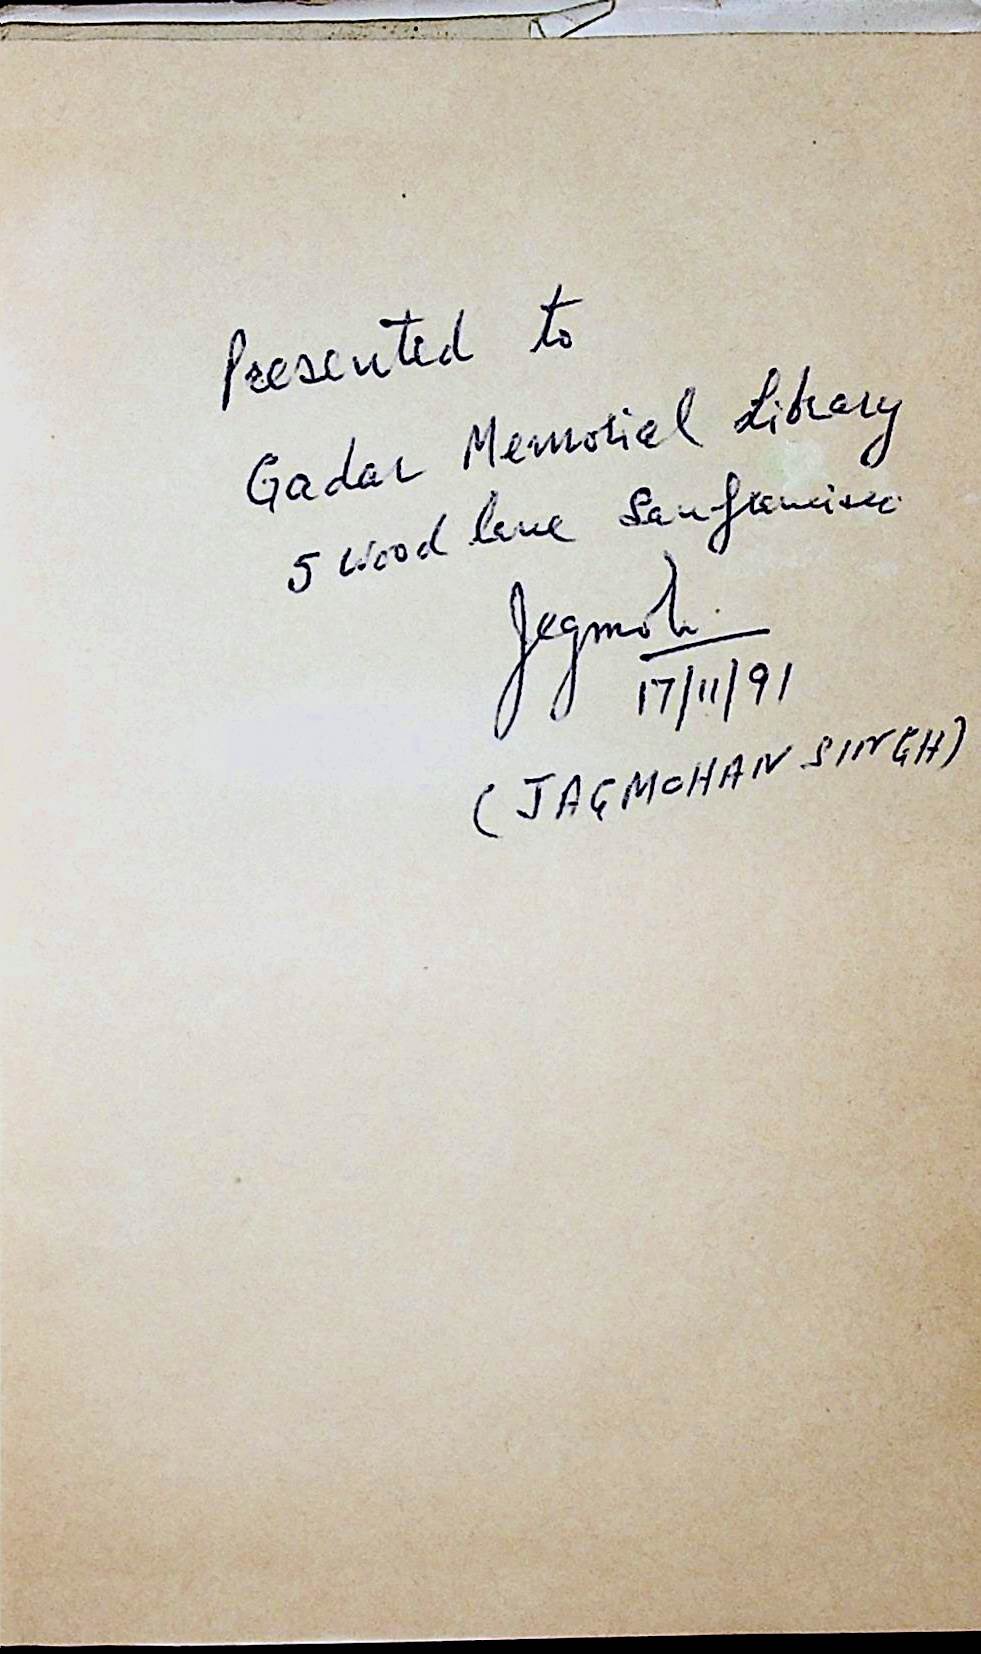 Presented to
Gadar Memorial Library
5 Wood lane San francisco
Jagmoh
17/11/91
(JAGMOHAN SINGH)